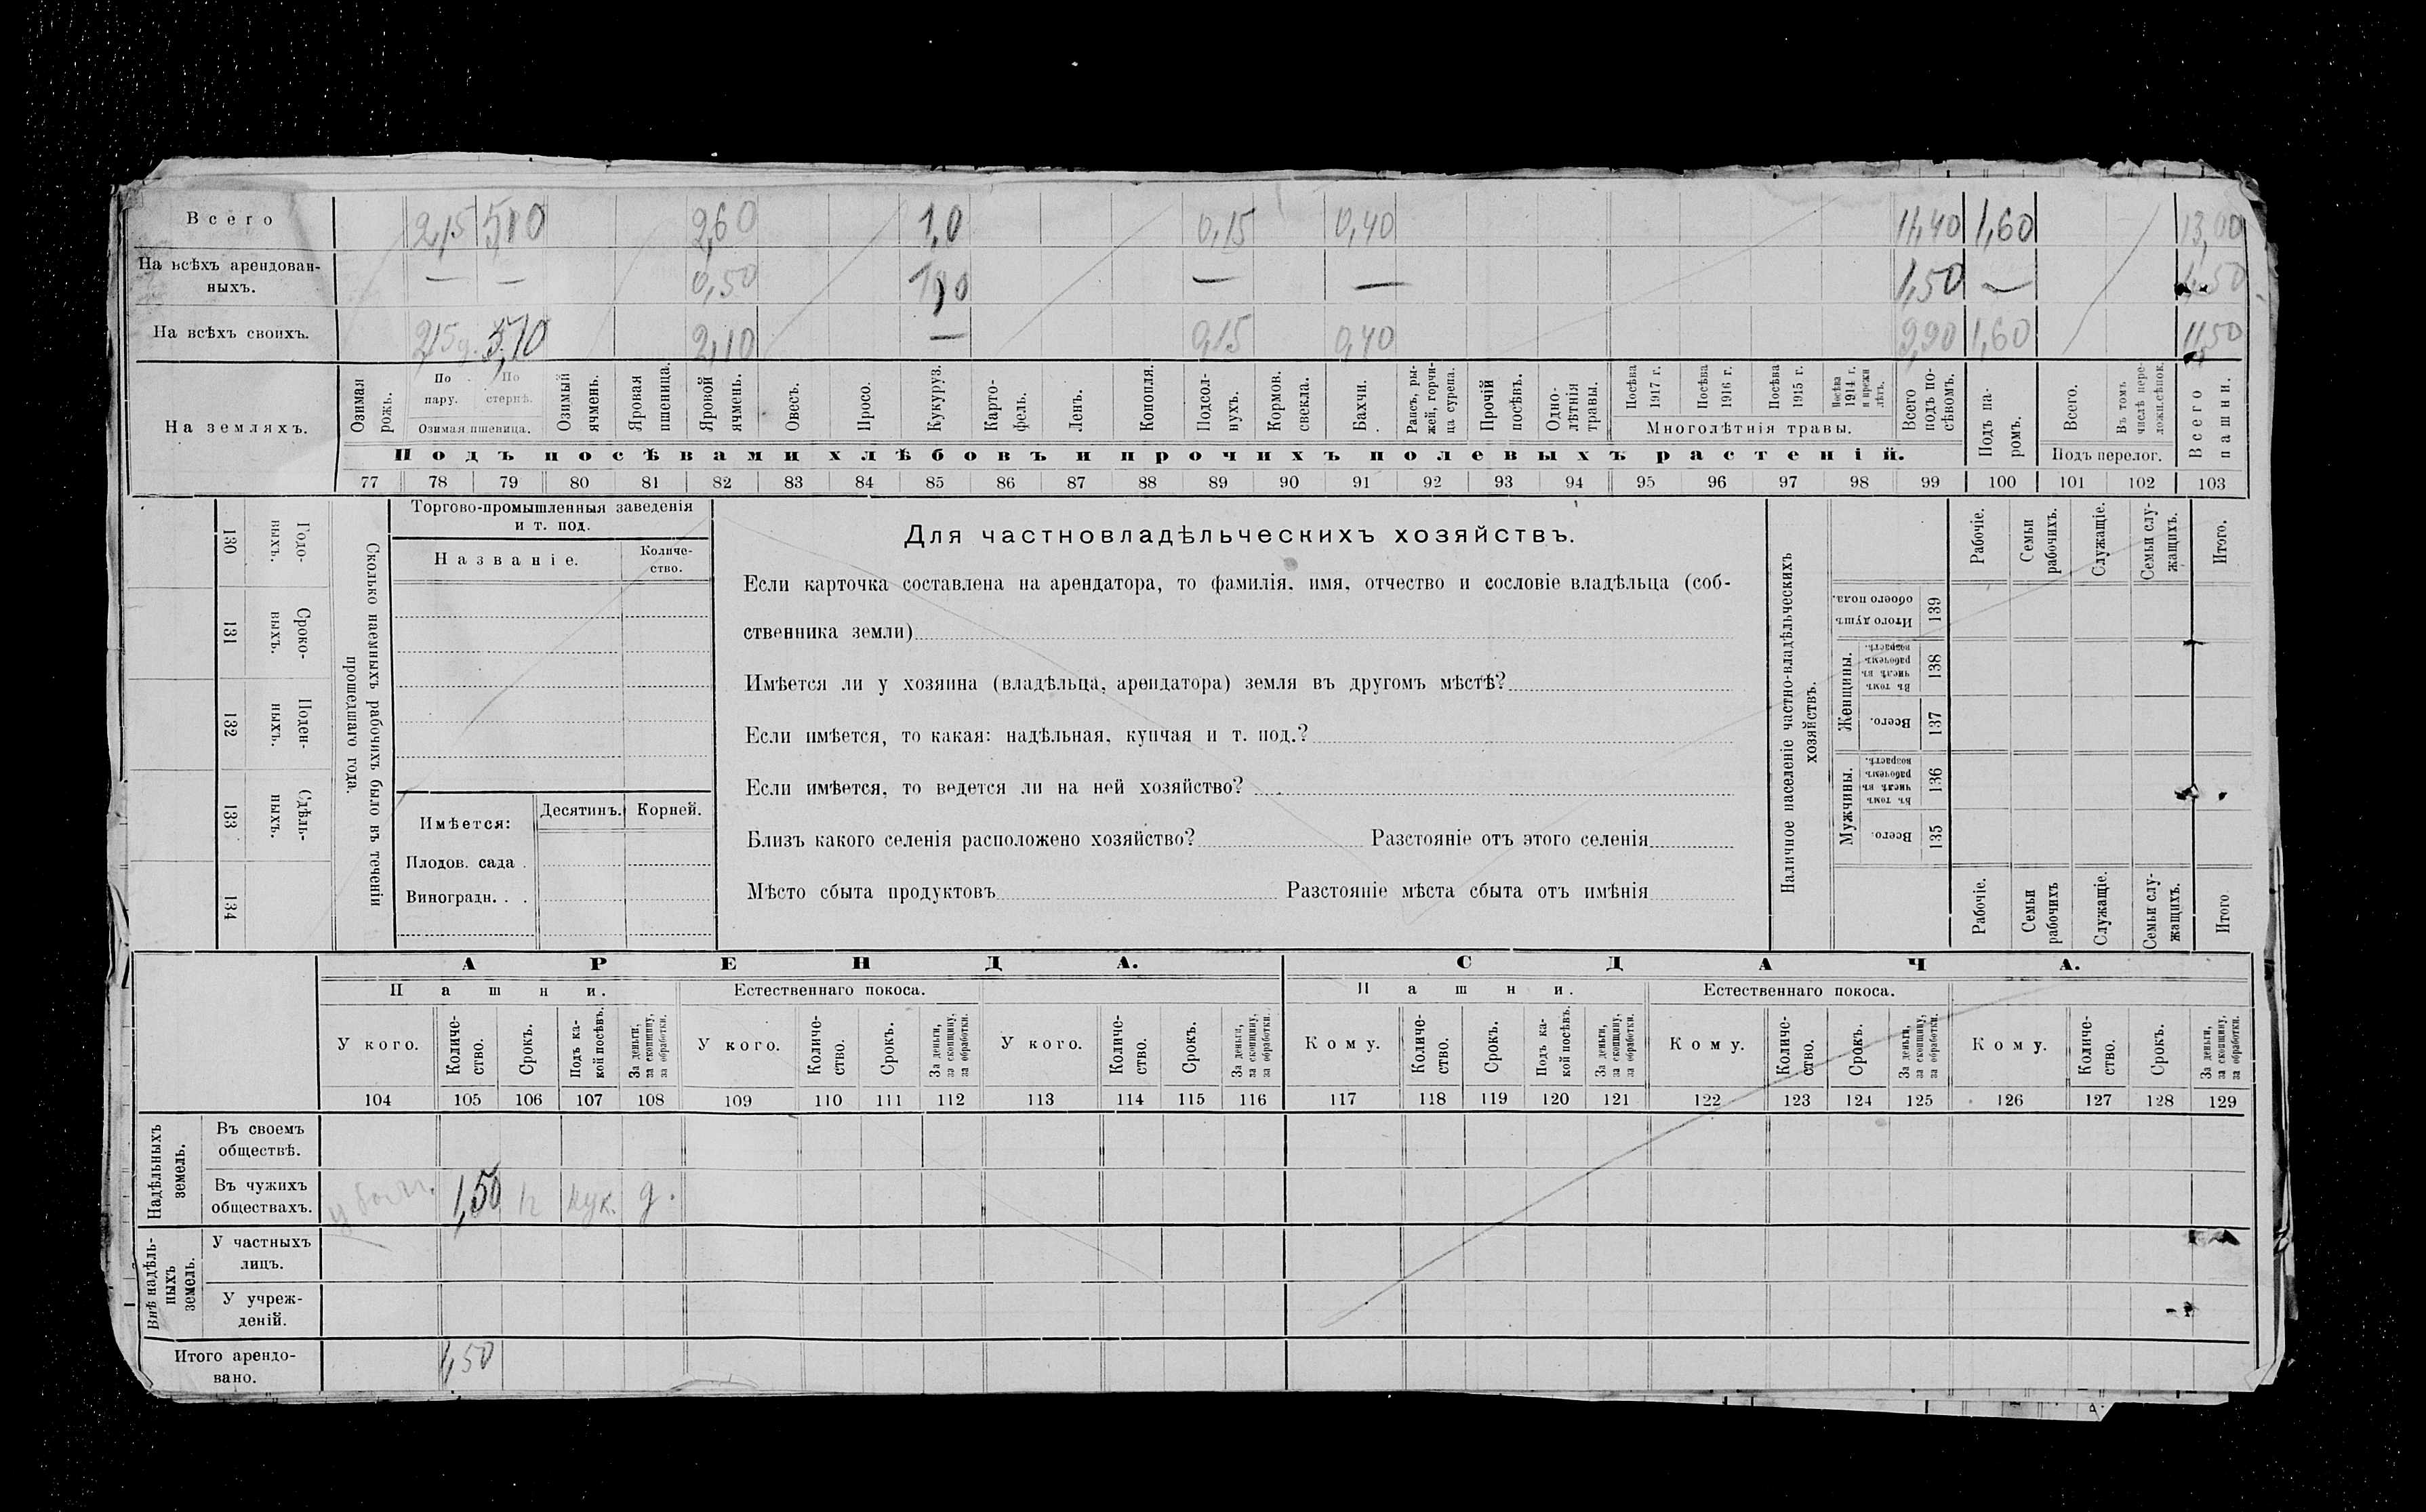 Всего 2,15 5,10 2,60 1,0 0,15 0,40 11,40 1,60 13,00
На всѣхъ арендован-
ныхъ. — — 0,50 1,0 — — 1,50 — 1,50
На всѣхъ своихъ. 2,15 5,10 2,10 — 0,15 0,40 9,90 1,60 11,50
На земляхъ.
Озимая рожь.
По пару.
По стернѣ.
Озимая пшеница.
Озимый ячмень.
Яровая пшеница.
Яровой ячмень.
Овесъ.
Просо.
Кукуруз.
Карто-
фель.
Ленъ.
Конопля.
Подсол-
нухъ.
Кормов.
свекла.
Бахчи.
Рапсъ, ры-
жей, горчи-
ца сурепа.
Прочій
посѣвъ.
Одно-
лѣтнія
травы.
Посѣва
1917 г.
Посѣва
1916 г.
Посѣва
1915 г.
Посѣва
1914 г.
и прежн
лѣтъ.
Многолѣтнія травы.
Всего
подъ по-
сѣвомъ.
Подъ па-
ромъ.
Всего.
Въ томъ
числѣ пере-
ложн.сѣнок.
Подъ перелог.
Всего
пашни.
Подъ посѣвами хлѣбовъ и прочихъ полевыхъ растеній.
77 78 79 80 81 82 83 84 85 86 87 88 89 90 91 92 93 94 95 96 97 98 99 100 101 102 103
130 Годо-
ныхъ.
131 Сроко-
ныхъ.
132 Поден-
ныхъ.
133 Сдѣль-
ныхъ.
134
Сколько наемныхъ рабочихъ было въ теченіи
прошедшаго года.
Торгово-промышленныя заведенія
и т. под.
Названіе.
Количе-
ство.
Имѣется:
Десятинъ.
Корней.
Плодов. сада .
Виноградн. . .
Для частновладѣльческихъ хозяйствъ.
Если карточка составлена на арендатора, то фамилія, имя, отчество и сословіе владѣльца (соб-
ственника земли)
Имѣется ли у хозяина (владѣльца, арендатора) земля въ другомъ мѣстѣ?
Если имѣется, то какая: надѣльная, купчая и т. под.?
Если имѣется, то ведется ли на ней хозяйство?
Близъ какого селенія расположено хозяйство? Разстояніе отъ этого селенія
Мѣсто сбыта продуктовъ Разстояніе мѣста сбыта отъ имѣнія
Наличное населеніе частно-владѣльческихъ
хозяйствъ.
Рабочіе.
Семьи
рабочихъ.
Служащіе.
Семьи слу-
жащихъ.
Итого.
Итого душъ
обоего пола.
139
Женщины.
Въ томъ
числѣ въ
рабочемъ
возрастѣ.
138
Всего.
137
Мужчины.
Въ томъ
числѣ въ
рабочемъ
возрастѣ.
136
Всего.
135
Рабочіе.
Семьи
рабочихъ
Служащіе.
Семьи слу-
жащихъ.
Итого
АРЕНДА.
СДАЧА.
Пашни.
Естественнаго покоса.
Пашни.
Естественнаго покоса.
У кого.
Количе-
ство.
Срокъ.
Подъ ка-
кой посѣвъ.
За деньги,
за скопщину,
за обработки.
У кого.
Количе-
ство.
Срокъ.
За деньги,
за скопщину,
за обработки.
У кого.
Количе-
ство.
Срокъ.
За деньги,
за скопщину,
за обработки.
Кому.
Количе-
ство.
Срокъ.
Подъ ка-
кой посѣвъ.
За деньги,
за скопщину,
за обработки.
Кому.
Количе-
ство.
Срокъ.
За деньги,
за скопщину,
за обработки.
Кому.
Количе-
ство.
Срокъ.
За деньги,
за скопщину,
за обработки.
104 105 106 107 108 109 110 111 112 113 114 115 116 117 118 119 120 121 122 123 124 125 126 127 128 129
Надѣльныхъ
земель.
Въ своемъ
обществѣ.
Въ чужихъ
обществахъ. 1,50 кук. д.
Внѣ надѣль-
ныхъ
земель.
У частныхъ
лицъ.
У учреж-
деній.
Итого арендо-
вано. 1,50